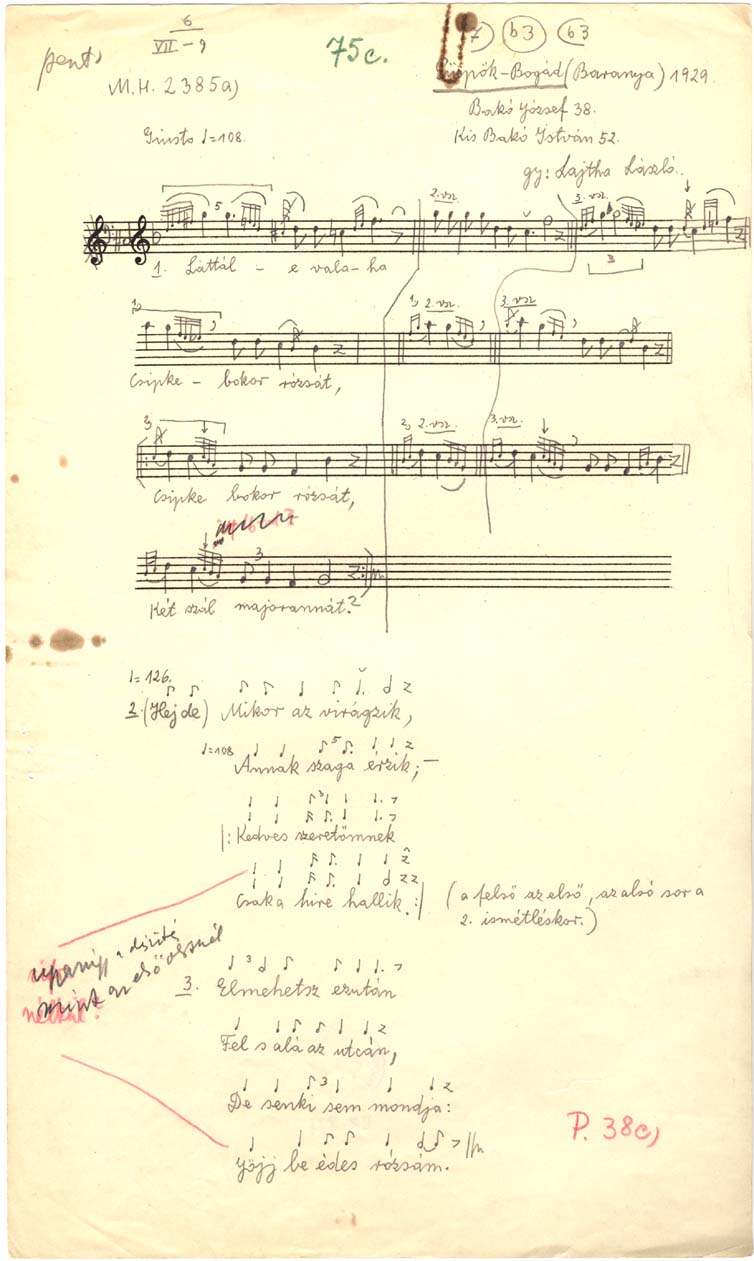 6
VII-9
75c.
7 b3 63
pent.
M.H. 2385a)
Püspök-Bogád (Baranya) 1929.
Bakó József 38.
Giusto ♩=108.
Kis Bakó István 52.
gy: Lajtha László.
2. vsz. 3. vsz.
5
3
1. Láttál - e vala-ha
2. vsz. 3. vsz.
Csipke - bokor rózsát,
2. vsz. 3. vsz.
Csipke bokor rózsát,
3
Két szál majorannát?
♩=126.
2. (Hej de) Mikor az virágzik,
♩=108 5
Annak szaga érzik; -
3
|: Kedves szeretőmnek
Csak a hire hallik. :|
(a felső az első, az alsó sor a
2. ismétléskor.)
ugyanígy a díszítés
mint az első dsnál
nélkül?
3
3. Elmehetsz ezután
Fel s alá az utcán,
3
De senki sem mondja:
P. 38c)
Jöjj be édes rózsám.